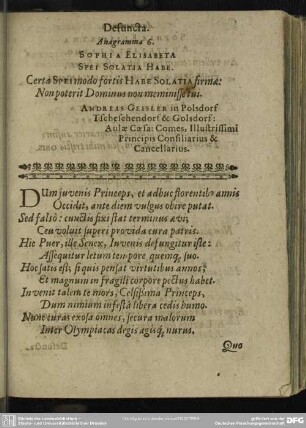 Defuncta.
Anagramma 6.
SOPHIA ELISABETA
SPEI SOLATIA HABE.
Certa SPEI modo fortis HABE SOLATIA firma:
Non poterit Dominus non meminisse tui.
ANDREAS GEISLER in Polsdorf
Tscheschendorf & Golsdorf:
Aulæ Cæsa: Comes, Illustrissimi
Principis Consiliarius &
Cancellarius.
DUm juvenis Princeps, et adhuc florentib9 annis
Occidit, ante diem vulgus obire putat.
Sed falsò: cunctis fixi stat terminus ævi;
Ceu voluit superi provida cura patris.
Hic Puer, ille Senex, Iuvenis defungitur iste:
Assequitur letum tempore quemq, suo.
Hoc satis est, si quis pensat virtutibus annos,
Et magnum in fragili corpore pectus habet.
Invenit talem te mors, Celsissima Princeps,
Dum nimium infestâ libera cedis humo.
Nunc curas exosa omnes, secura malorum
Inter Olympiacas degis agisq, nurus.
Quo